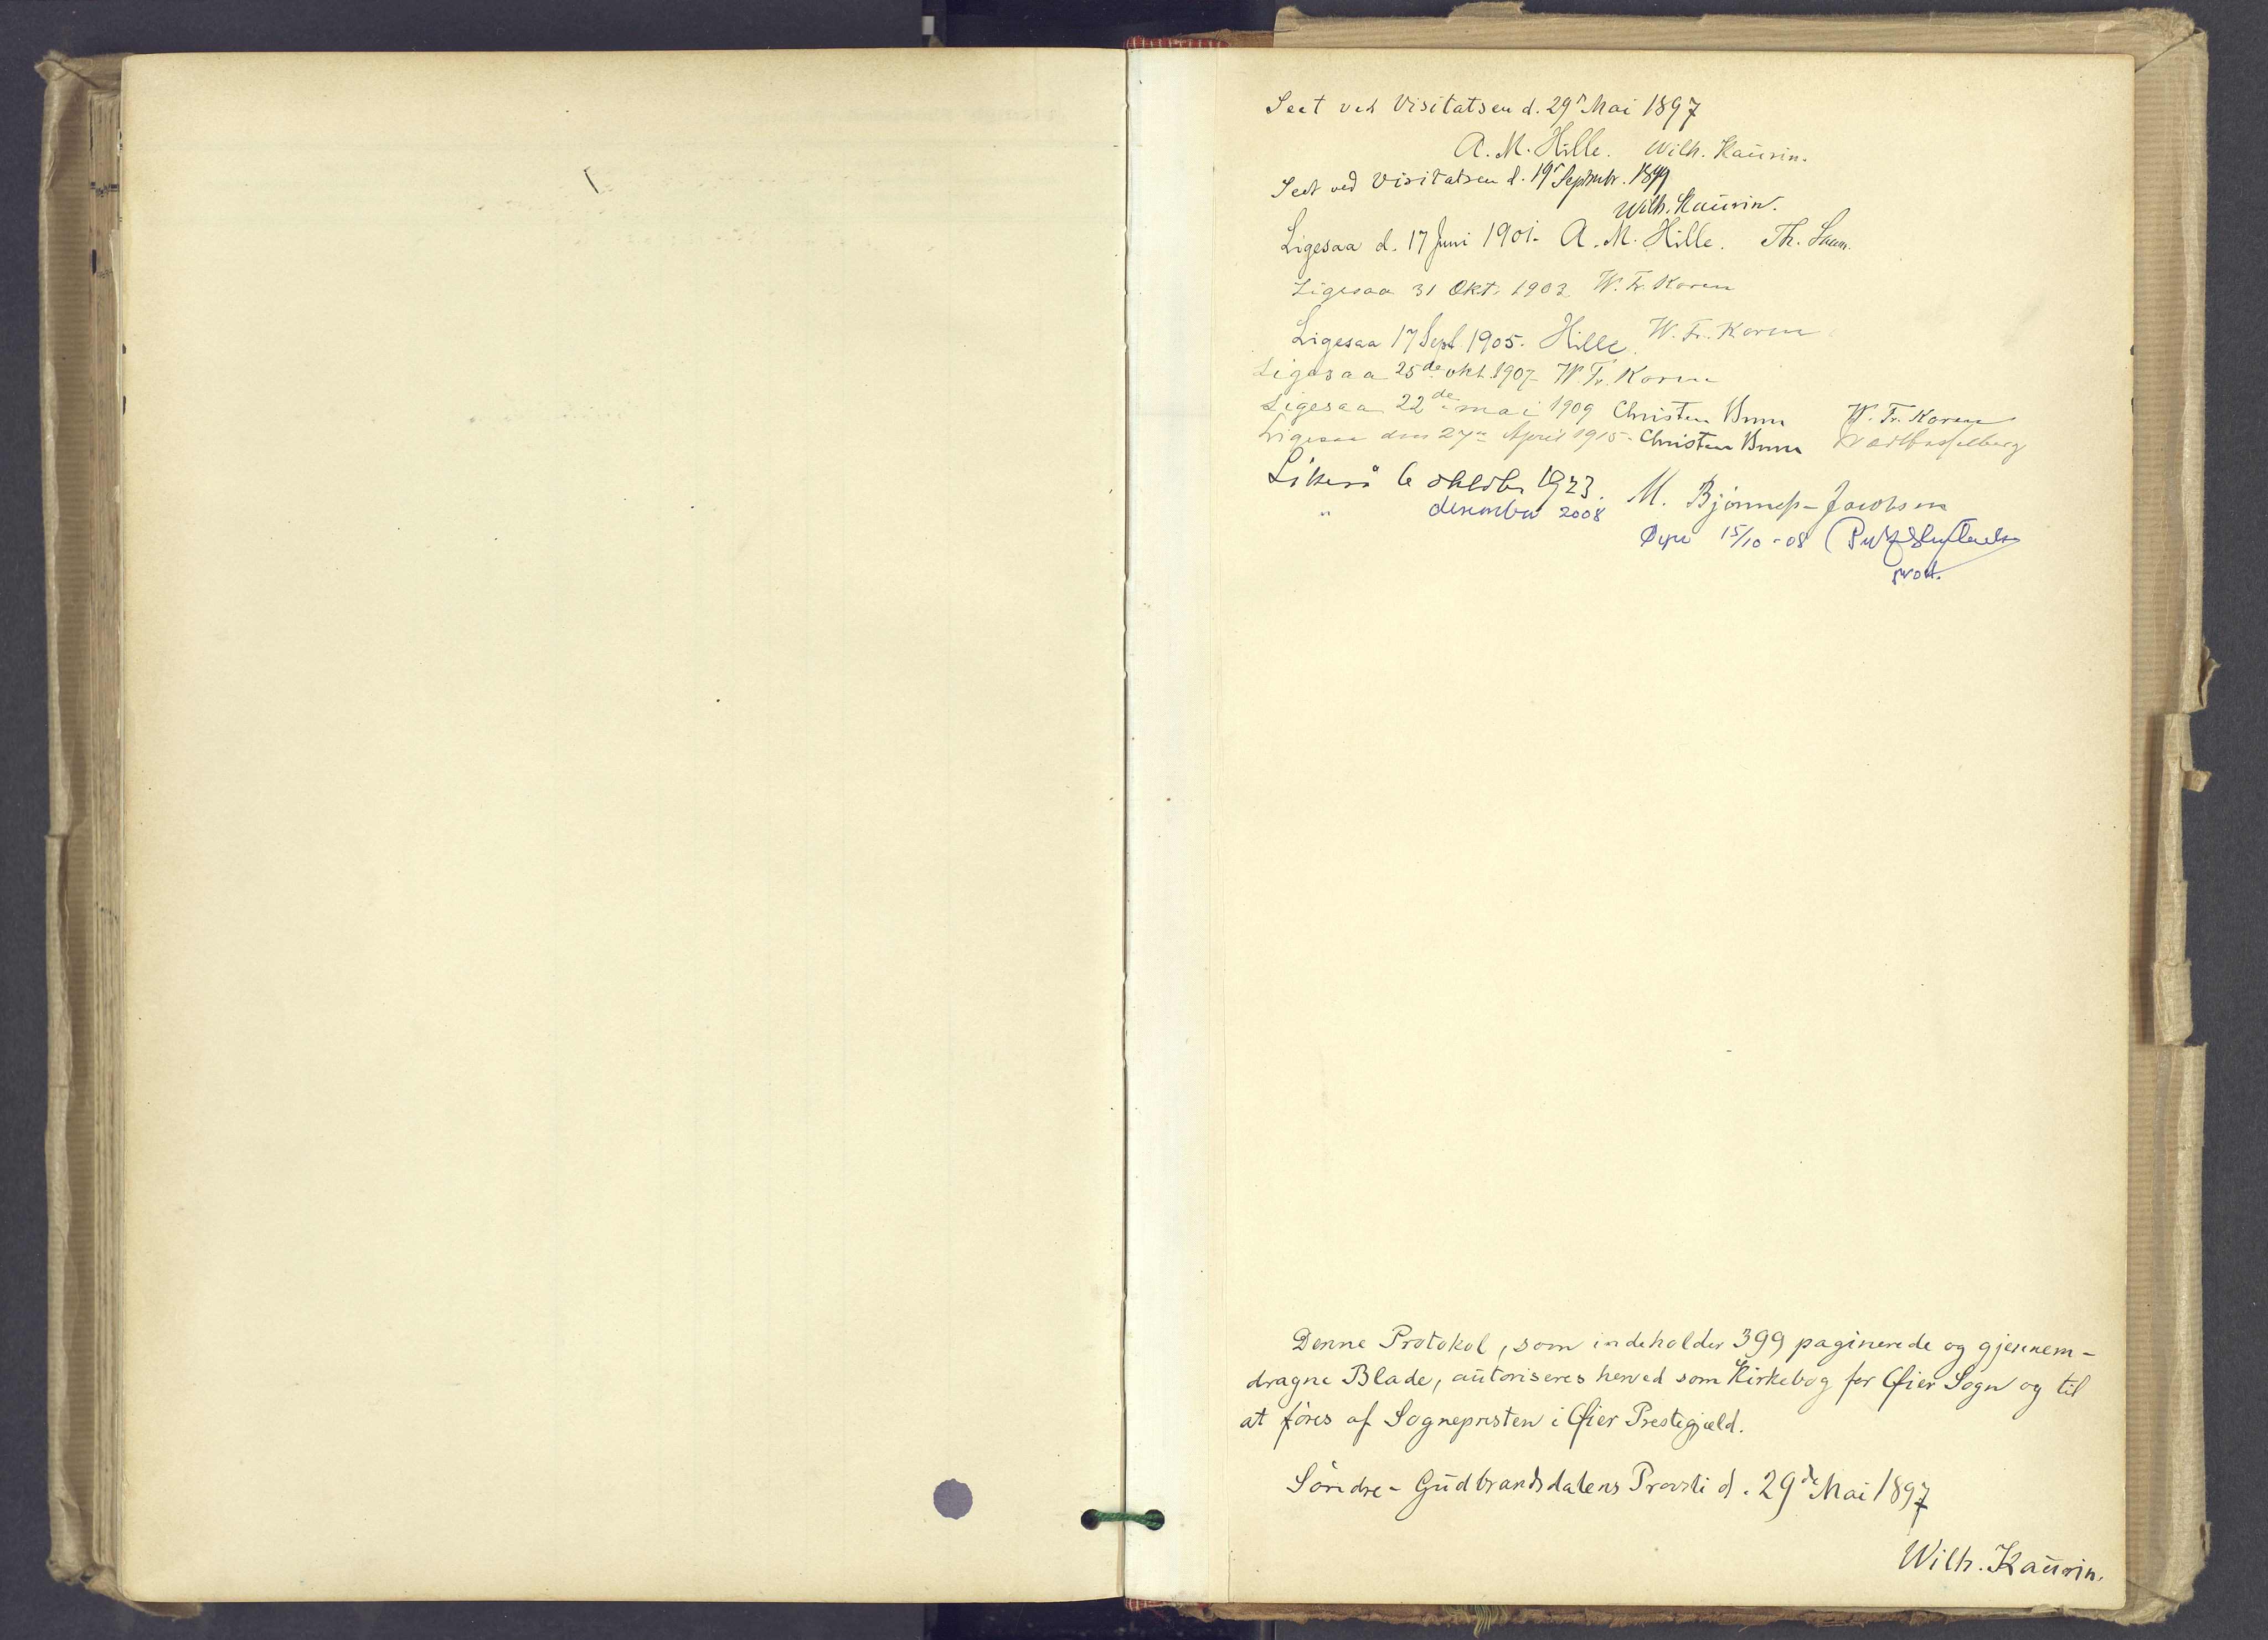 Seet ved Visitatsen d. 29de Mai 1897
A. M. Hille. Wilh. Kaurin.
Seet ved Visitatsen d. 19de Septmbr. 1899
Wilh. Kaurin.
Ligesaa d. 17 Juni 1901. A. M. Hille. Th.
Ligesaa 31 Okt. 1903 W. Fr. Koren
Ligesaa 17 Sept. 1905. Hille. W. Fr. Koren
Ligesaa 25de okt. 1907 W. Fr. Koren
Ligesaa 22de mai 1909 Christen Brun W. Fr. Koren
Ligesaa den 27de April 1915. Christen Brun
Likeså 6 oktober 1923. M. Bjønness-Jacobsen
" desember 2008
Øyer 15/10-08
prost.
Denne Protokol, som indeholder 399 paginerede og gjennem-
dragne Blade, autoriseres herved som Kirkebog for Øier Sogn og til
at føres af Sognepresten i Øier Prestegjæld.
Søndre-Gudbrandsdalens Provsti d. 29de Mai 1897
Wilh. Kaurin.